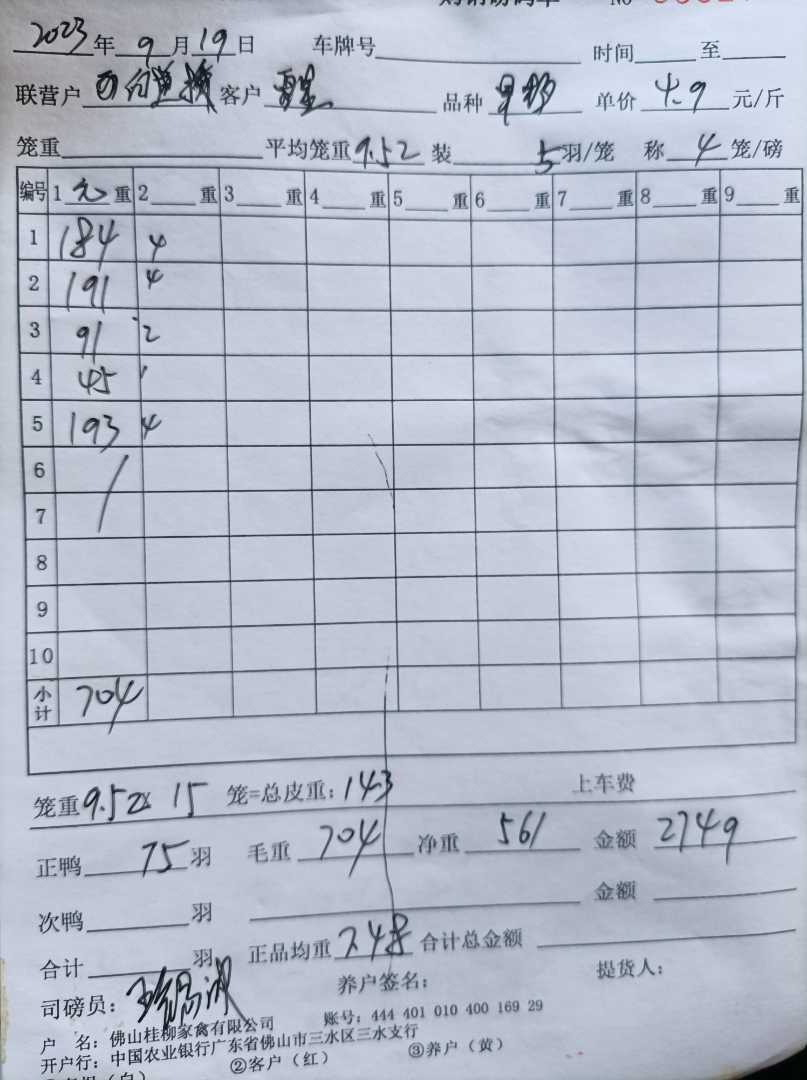 2023年9月19日 车牌号 时间 至
联营户 客户 品种 单价 4.9 元/斤
笼重 平均笼重9.52 装 5羽/笼 称 4 笼/磅
编号 1 元 重 2 重 3 重 4 重 5 重 6 重 7 重 8 重 9 重
1 184 4
2 191 4
3 91 2
4 45 1
5 193 4
6
7
8
9
10
小计 704
笼重9.52x 15 笼=总皮重: 143 上车费
正鸭 75 羽 毛重 704 净重 561 金额 2749
次鸭 羽 金额
合计 羽 正品均重 7.48 合计总金额
司磅员: 养户签名: 提货人:
户 名: 佛山桂柳家禽有限公司 账号: 444 401 010 400 169 29
开户行: 中国农业银行广东省佛山市三水区三水支行
②客户（红） ③养户（黄）